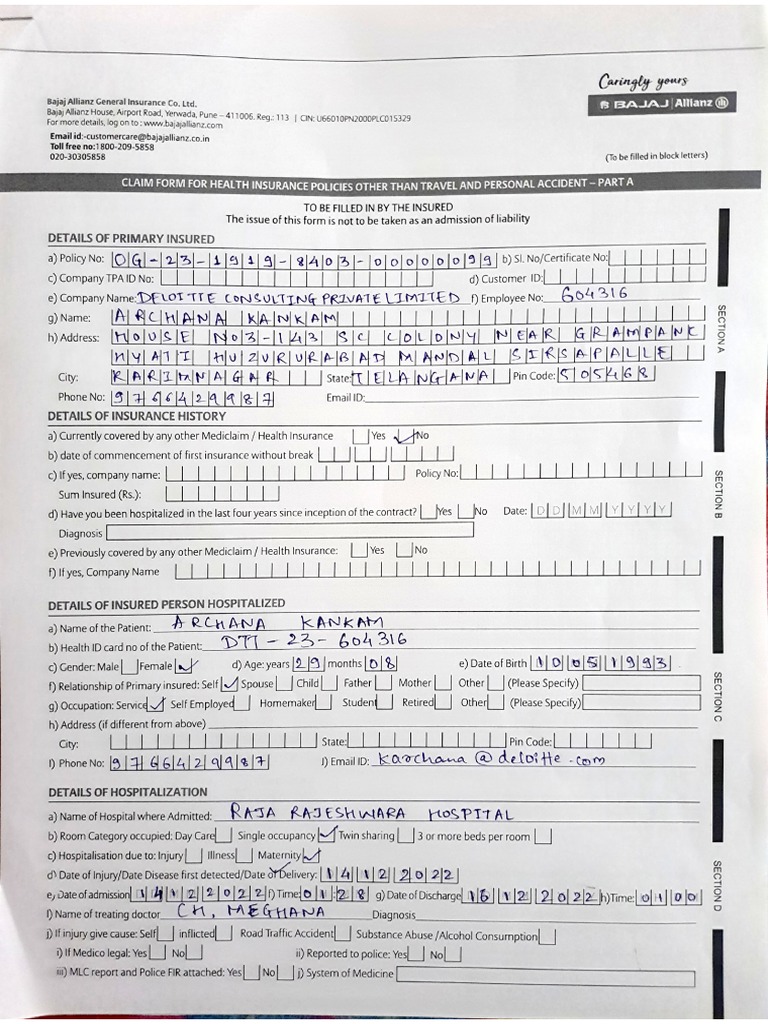 Caringly yours
BAJAJ Allianz
Bajaj Allianz General Insurance Co. Ltd.
Bajaj Allianz House, Airport Road, Yerwada, Pune – 411006. Reg.: 113 | CIN: U66010PN2000PLC015329
For more details, log on to : www.bajajallianz.com
Email id:-customercare@bajajallianz.co.in
Toll free no:1800-209-5858
020-30305858
(To be filled in block letters)
CLAIM FORM FOR HEALTH INSURANCE POLICIES OTHER THAN TRAVEL AND PERSONAL ACCIDENT – PART A
TO BE FILLED IN BY THE INSURED
The issue of this form is not to be taken as an admission of liability
DETAILS OF PRIMARY INSURED
a) Policy No: OG-23-1919-8403-00000099 b) Sl. No/Certificate No:
c) Company TPA ID No: d) Customer ID:
e) Company Name: DELOITTE CONSULTING PRIVATE LIMITED f) Employee No: 604316
g) Name: ARCHANA KANKAM
h) Address: HOUSE NO3-143 SC COLONY NEAR GRAMPANC
HYATI HUZURURABAD MANDAL SIRSAPALLE
City: KARIMNAGAR State: TELANGANA Pin Code: 505468
Phone No: 9766429987 Email ID:
SECTION A
DETAILS OF INSURANCE HISTORY
a) Currently covered by any other Mediclaim / Health Insurance Yes ✓ No
b) date of commencement of first insurance without break
c) If yes, company name: Policy No:
Sum Insured (Rs.):
d) Have you been hospitalized in the last four years since inception of the contract? Yes No Date: D D M M Y Y Y Y
Diagnosis
e) Previously covered by any other Mediclaim / Health Insurance: Yes No
f) If yes, Company Name
SECTION B
DETAILS OF INSURED PERSON HOSPITALIZED
a) Name of the Patient: ARCHANA KANKAM
b) Health ID card no of the Patient: DTT-23-604316
c) Gender: Male Female ✓ d) Age: years 29 months 08 e) Date of Birth 10051993
f) Relationship of Primary insured: Self ✓ Spouse Child Father Mother Other (Please Specify)
g) Occupation: Service ✓ Self Employed Homemaker Student Retired Other (Please Specify)
h) Address (if different from above)
City: State: Pin Code:
I) Phone No: 9766429987 J) Email ID: karchana@deloitte.com
SECTION C
DETAILS OF HOSPITALIZATION
a) Name of Hospital where Admitted: RAJA RAJESHWARA HOSPITAL
b) Room Category occupied: Day Care Single occupancy ✓ Twin sharing 3 or more beds per room
c) Hospitalisation due to: Injury Illness Maternity ✓
d) Date of Injury/Date Disease first detected/Date of Delivery: 14122022
e) Date of admission 14122022 f) Time: 01:28 g) Date of Discharge 16122022 h) Time: 0100
I) Name of treating doctor CH, MEGHANA Diagnosis
j) If injury give cause: Self inflicted Road Traffic Accident Substance Abuse /Alcohol Consumption
i) If Medico legal: Yes No ii) Reported to police: Yes No
iii) MLC report and Police FIR attached: Yes No j) System of Medicine
SECTION D